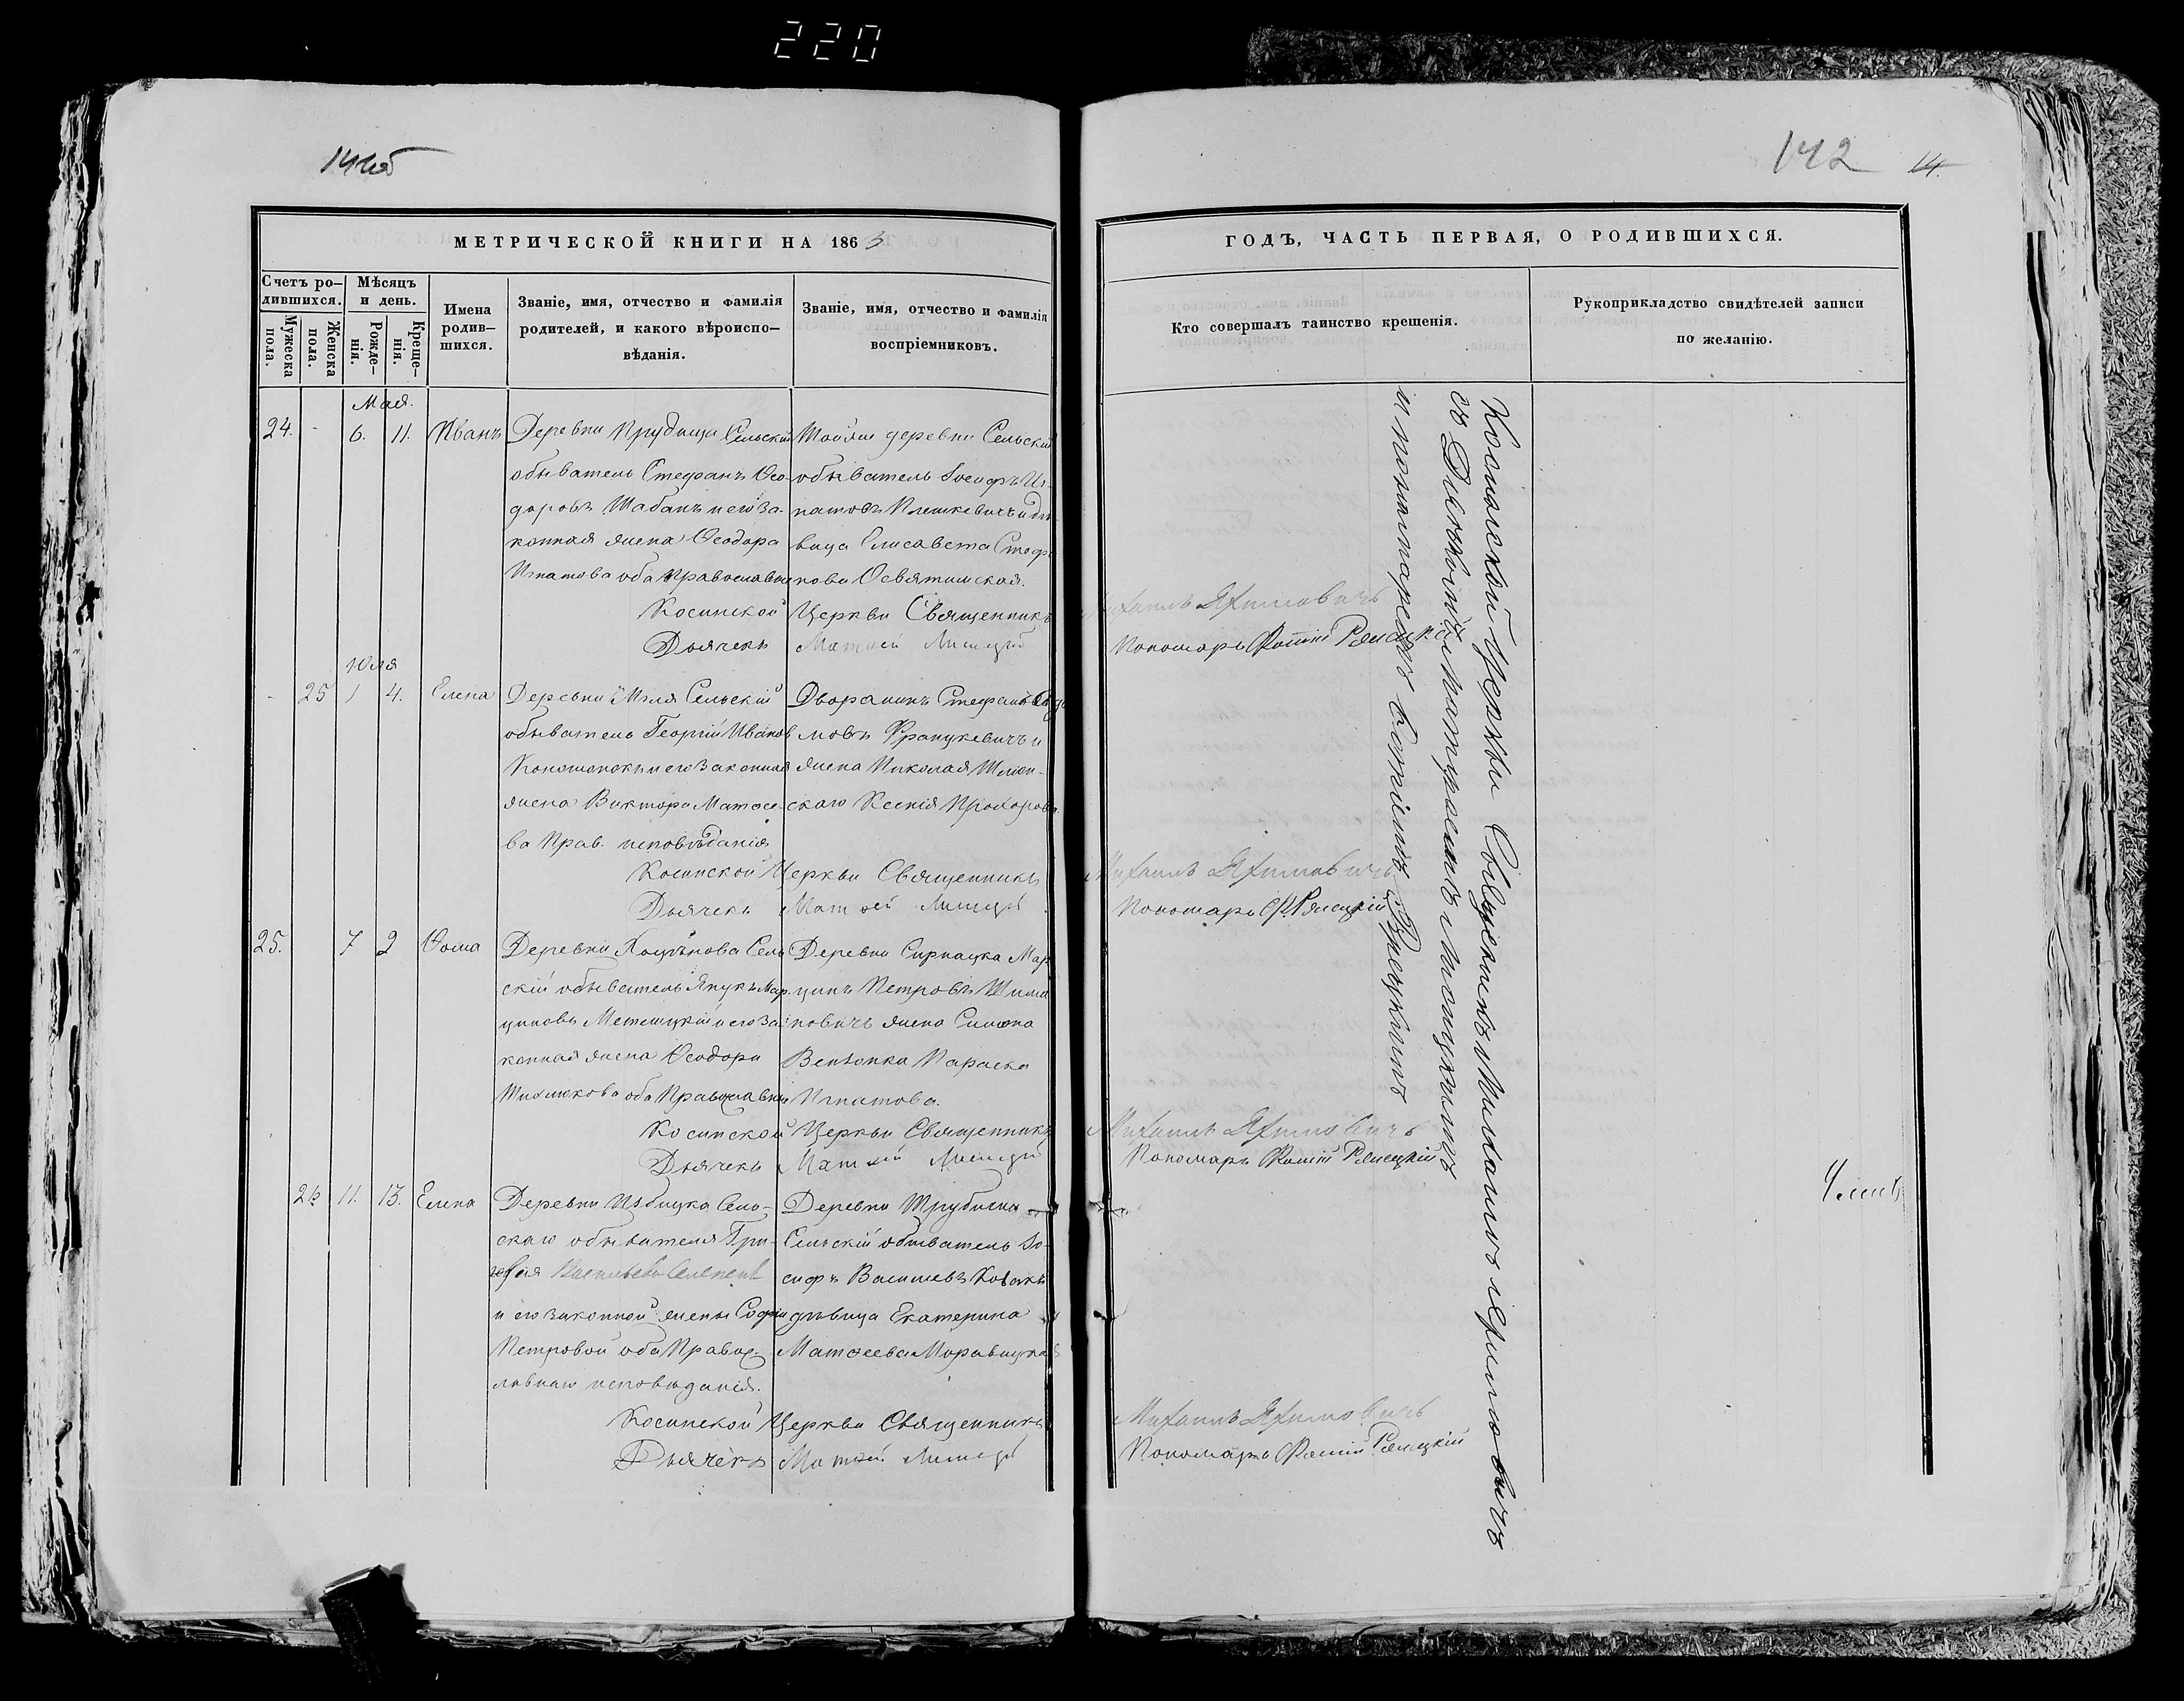 220
142 14.
МЕТРИЧЕСКОЙ КНИГИ НА 1863
ГОДЪ, ЧАСТЬ ПЕРВАЯ, О РОДИВШИХСЯ.
Счетъ ро–дившихся.
Мужеска пола.
Женска пола.
Мѣсяцъ и день.
Рожде–нія.
Креще–нія.
Имена родив–шихся.
Званіе, имя, отчество и фамилія
родителей, и какого вѣроиспо–
вѣданія.
Званіе, имя, отчество и фамилія
воспріемниковъ.
Кто совершалъ таинство крещенія.
Рукоприкладство свидѣтелей записи
по желанію.
Мая.
24. - 6. 11. Иванъ
Деревни Прудища Сельскій
обыватель Стефанъ Ѳео-
доровъ Шабанъ и его за-
конная жена Ѳеодора
Игнатова оба Православные
Тойже деревни Сельскій
обыватель Іосифъ Иг-
натовъ Плешкевичъ и дѣ-
вица Елисавета Стеф
нова Освятимская.
Косинской Церкви Священникъ Михаилъ Яхимовичъ
Дьячекъ Матѳей Лисицкій Пономарь Фотій Ржецкій
Юля
- 25 1 4. Елена
Деревни Мгля Сельскій
обыватель Георгій Иванов
Кононенокъ и его законная
жена Виктора Матѳее-
ва Прав. исповѣданія
Дворянинъ Стефанъ
мовъ Францкевичъ и
жена Николая
скаго Ксенія Прохорова.
Косинской Церкви Священникъ Михаилъ Яхимовичъ
Дьячекъ Матѳей Лисицкій Пономарь Ф. Ржецкій
25. 7 2 Ѳома
Деревни Сель
скій обыватель Янукъ Мар
циновъ Метелицкій и его за
конная жена Ѳеодора
оба Православные
Деревни Мар
цинъ Петровъ Шима
новичъ жена Симона
Параска
Игнатова.
Косинской Церкви Священникъ Михаилъ Яхимовичъ
Дьячекъ Матѳей Лисицкій Пономарь Фотій Ржецкій
26 11. 13. Елена
Деревни Избицка Сель-
скаго обывателя Гри-
горія Васильева
и его законной жены Софіи
Петровой оба Правос-
лавнаго исповѣданія.
Деревни
Сельскій обыватель Іо-
сифъ Васильевъ Козакъ
дѣвица Екатерина
Матѳеева Моравицкая
Косинской Церкви Священникъ Михаилъ Яхимовичъ
Дьячекъ Матѳей Лисицкій Пономарь Фотій Ржецкій
Косинской Церкви Священникъ Михаилъ Яхимовичъ
съ Дьячкомъ Матѳеемъ Лисицкимъ
и пономаремъ Фотіемъ Ржецкимъ